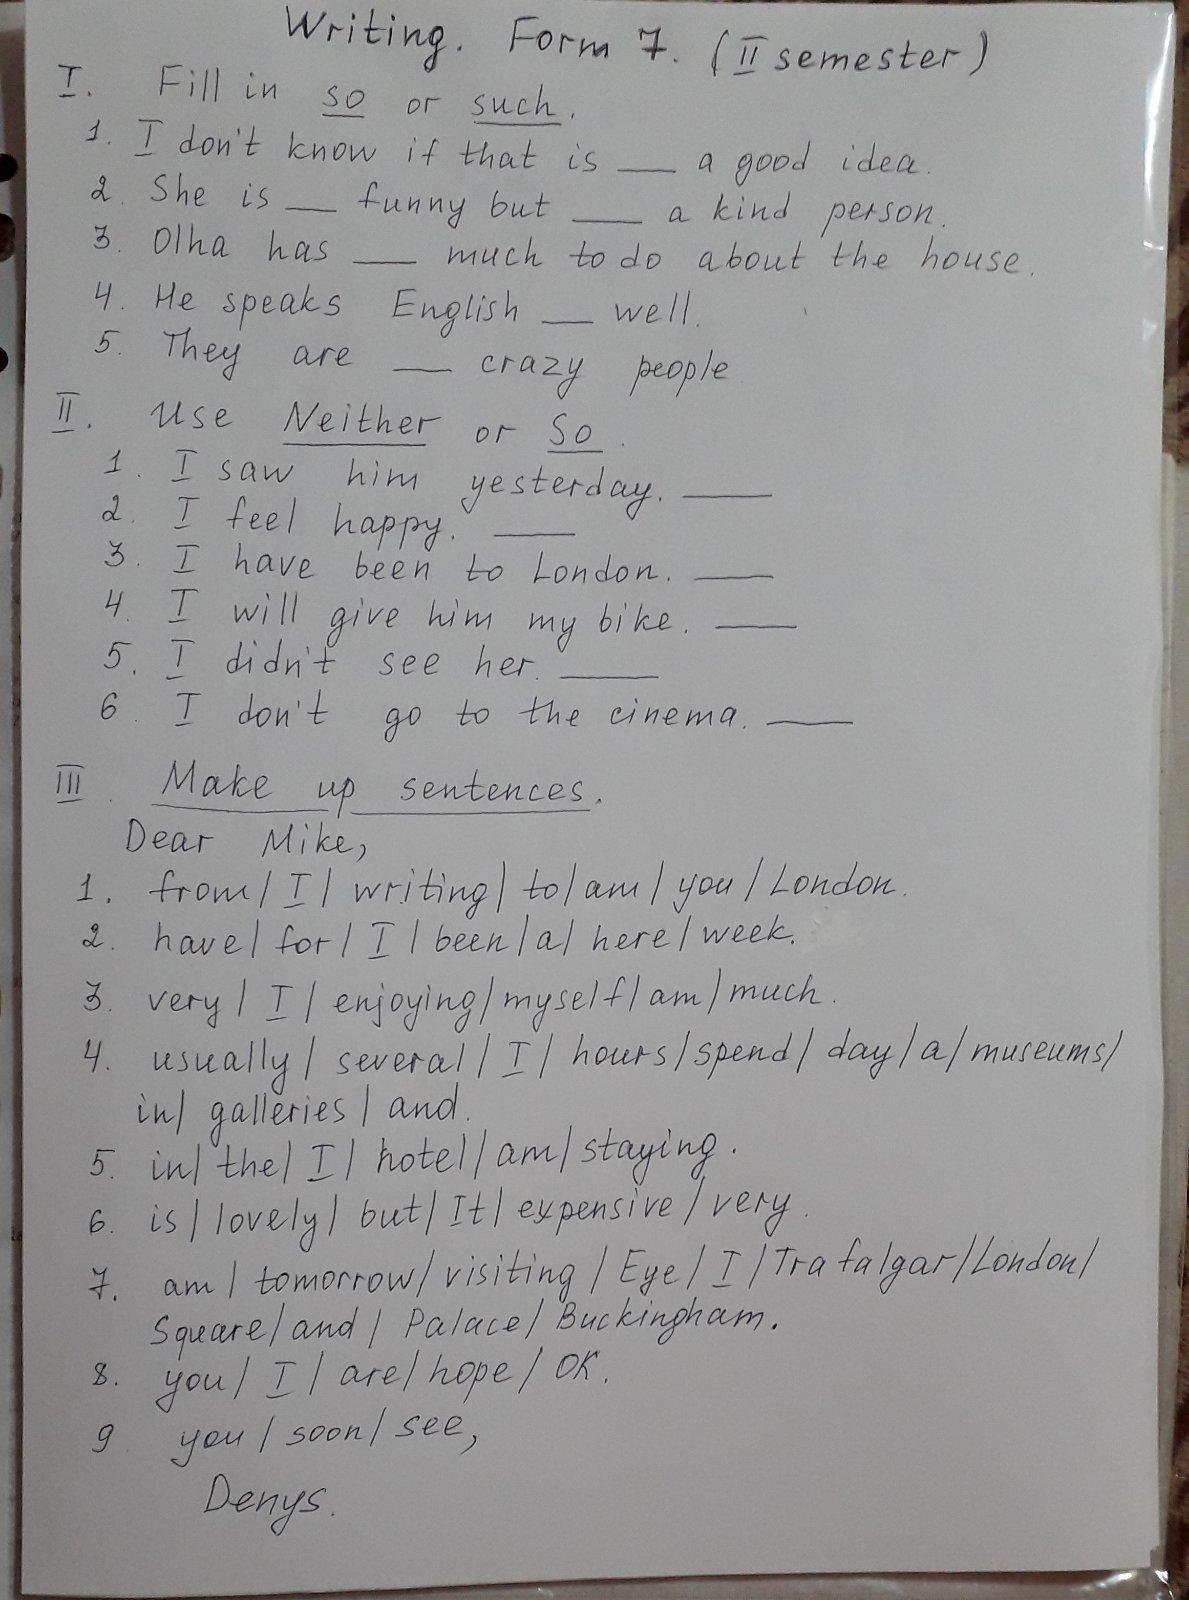 Writing. Form 7. (II semester)
I. Fill in so or such.
1. I don't know if that is ___ a good idea.
2. She is ___ funny but ___ a kind person.
3. Olha has ___ much to do about the house.
4. He speaks English ___ well.
5. They are ___ crazy people
II. Use Neither or So.
1. I saw him yesterday. ___
2. I feel happy. ___
3. I have been to London. ___
4. I will give him my bike. ___
5. I didn't see her. ___
6. I don't go to the cinema. ___
III. Make up sentences.
Dear Mike,
1. from/ I/ writing/ to/ am/ you/ London.
2. have/ for/ I/ been/a/ here/week.
3. very/ I/ enjoying/myself/am/much.
4. usually/ several/ I/ hours/spend/ day/a/museums/
in/ galleries/ and.
5. in/ the/ I/ hotel/ am/ staying.
6. is/ lovely/ but/ It/ expensive/very.
7. am/ tomorrow/ visiting/ Eye/ I/Trafalgar/London/
Square/and/ Palace/ Buckingham.
8. you/ I/ are/ hope/ OK.
9 you/ soon/ see,
Denys.